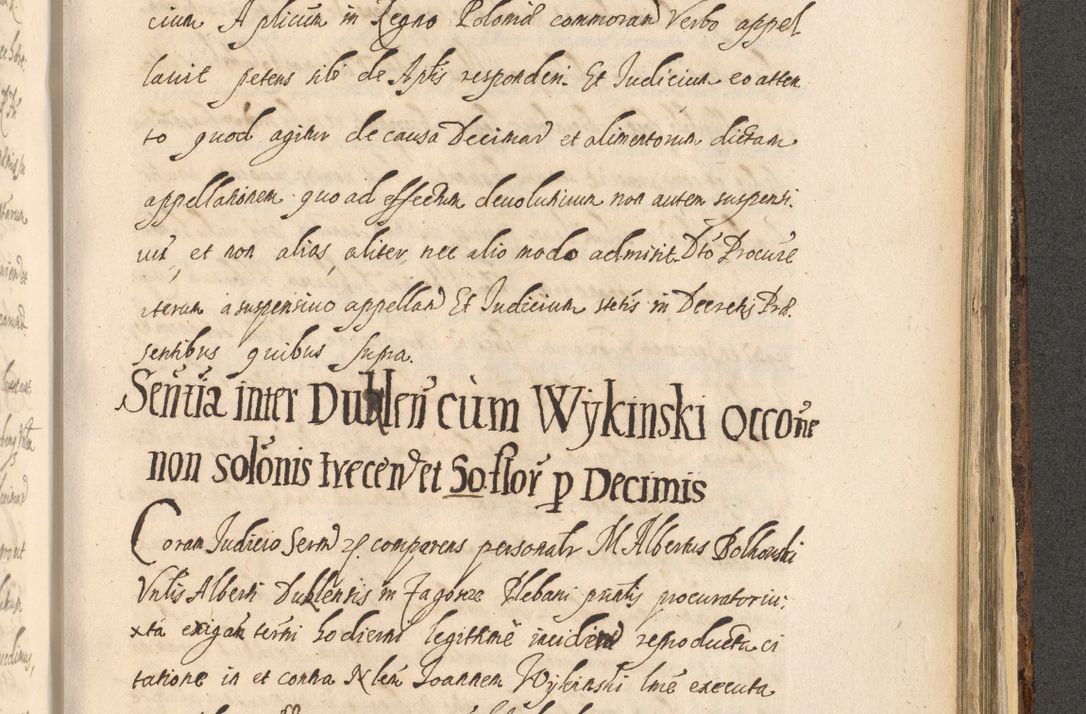 cium Aplicum in Regno Poloniæ commoran Verbo appel
lavit petens sibi de Aptis responderi. Et Judicium eo atten
to quod agitur de causa Decimar et alimentorum dictam
appellationem quo ad effectum devolutivum non autem suspensi
vu, et non alias, aliter, nec alio modo admisit. Dto Procure
iterum a suspensivo appellan Et Judicium stetis in Decretis Præ
sentibus quibus supra.
Sentia inter Dublen cum Wykinski occone
non solonis trecen et 50 flor p Decimis
Coram Judicio Serm comparens personalr M Albertus Polkowski
Vnlis Alberti Dublensis in Plebani pntis procuratoriu:
xta exigan termi hodierni legitime inciden reproducta ci
tatione in et contra Nlem Joannem Wykinski lme executa